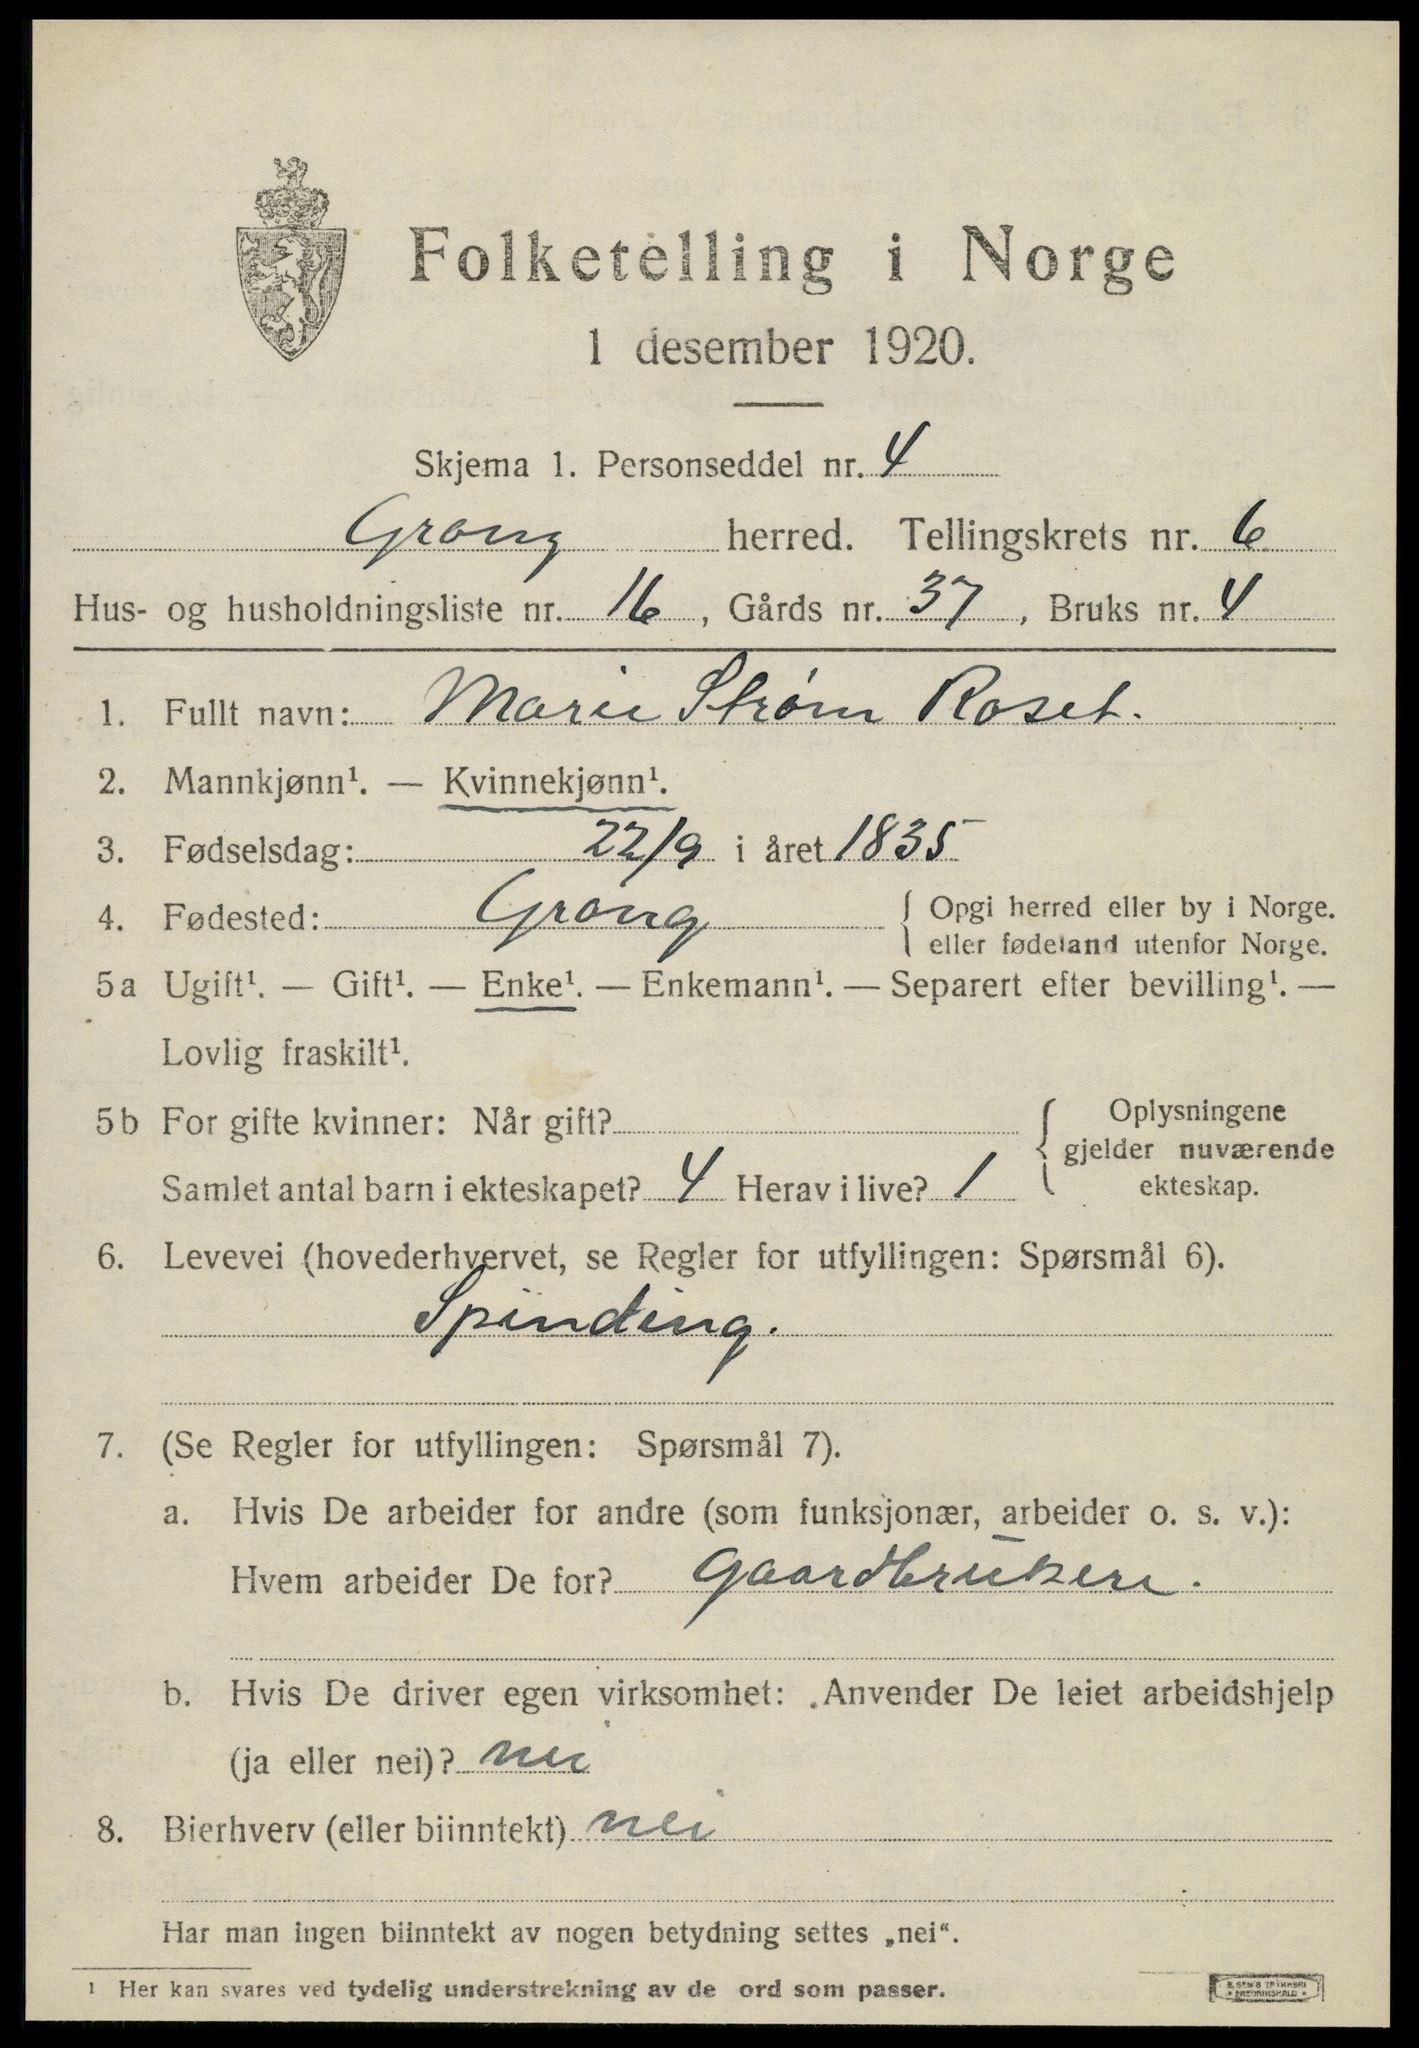 Folketelling i Norge
1 desember 1920.
Skjema 1. Personseddel nr. 4
Grong herred. Tellingskrets nr. 6
Hus- og husholdningsliste nr. 16, Gårds nr. 37, Bruks nr. 4
1. Fullt navn: Marie Strøm Roset.
2. Mannkjønn¹. — Kvinnekjønn¹.
3. Fødselsdag: 22/9 i året 1835
4. Fødested: Grong { Opgi herred eller by i Norge.
eller fødeland utenfor Norge.
5a Ugift¹. — Gift¹. — Enke¹. — Enkemann¹. — Separert efter bevilling¹. —
Lovlig fraskilt¹.
5b For gifte kvinner: Når gift? { Oplysningene
gjelder nuværende
Samlet antal barn i ekteskapet? 4 Herav i live? 1 ekteskap.
6. Levevei (hovederhvervet, se Regler for utfyllingen: Spørsmål 6).
Spinding.
7. (Se Regler for utfyllingen: Spørsmål 7).
a. Hvis De arbeider for andre (som funksjonær, arbeider o. s. v.):
Hvem arbeider De for? Gaardbrukere.
b. Hvis De driver egen virksomhet: Anvender De leiet arbeidshjelp
(ja eller nei)? nei
8. Bierhverv (eller biinntekt) nei
Har man ingen biinntekt av nogen betydning settes „nei“.
¹ Her kan svares ved tydelig understrekning av de ord som passer.
E. SEM'S TRYKKERI
• FREDRIKSHALD •